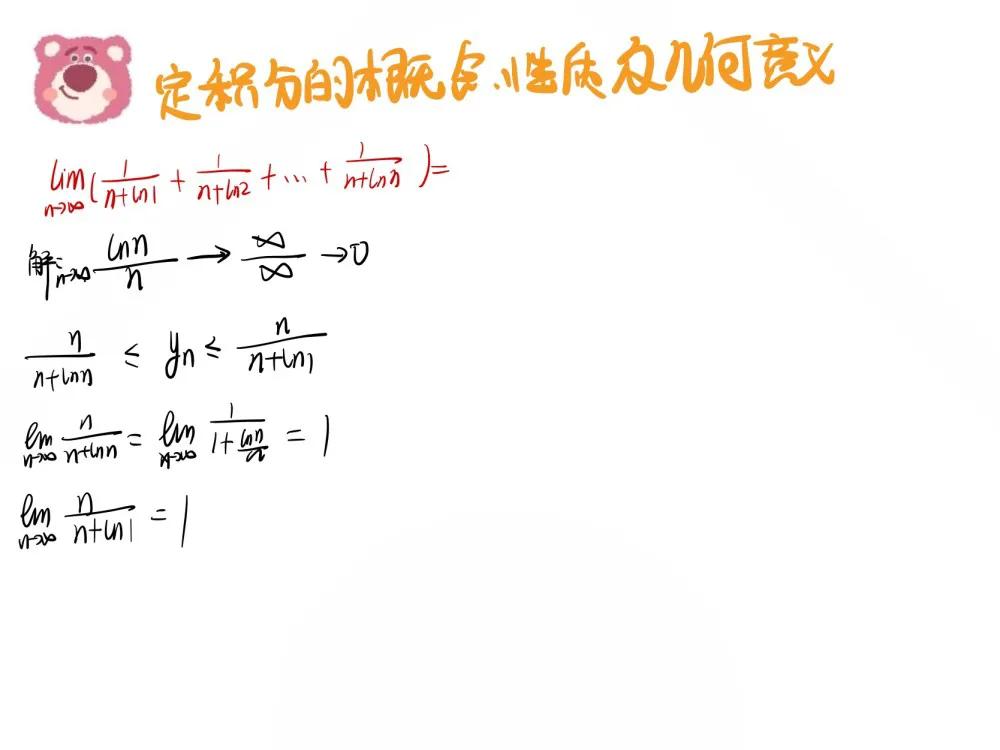 定积分的概念、性质及几何意义
lim n→∞ (1/(n+ln1) + 1/(n+ln2) + … + 1/(n+lnn)) =
解: n→∞ lnn/n → ∞/∞ → 0
n/(n+lnn) ≤ yn ≤ n/(n+ln1)
lim n→∞ n/(n+lnn) = lim n→∞ 1/(1+lnn/n) = 1
lim n→∞ n/(n+ln1) = 1